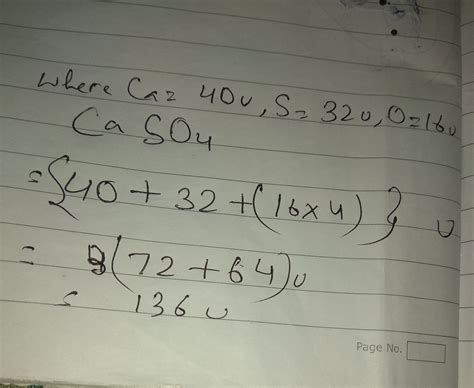 where Ca= 40u, S= 32u, O=16u
Ca SO4
= {40 + 32 + (16×4)} u
= (72 + 64)u
= 136 u
Page No.